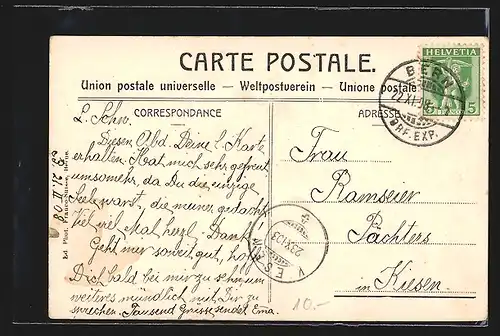 CARTE POSTALE.
Union postale universelle – Weltpostverein – Unione postale
CORRESPONDANCE
ADRESSE
HELVETIA
5
BERN
22.XI.08
BRF. EXP.
L. Schw.
Diesen Abd. Deine l. Karte
erhalten. Hat mich sehr gefreut
umsomehr, da Du die einzige
Seele warst, die meiner gedacht.
Viel viel Mal herzl. Dank.
Geht mir soweit gut, hoffe
Dich bald bei mir zu sehen um
weiteres mündlich mit Dir zu
sprechen. Tausend Grüsse sendet Ema.
Frau
Ramseier
Pächters
in Kiesen
23.XI.08
10.-